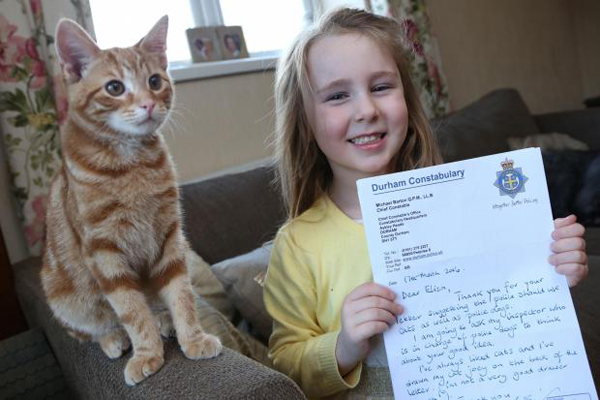 Durham Constabulary
Michael Barton Q.P.M, LL.B
Chief Constable
Chief Constable's Office
Constabulary Headquarters
Aykley Heads
DURHAM
County Durham
DH1 5TT
Tel No
Fax No
Web Site
Your Ref
Our Ref
March 2016.
Dear Eliza,
Thank you for your
letter suggesting that police should use
cats as well as police dogs.
I am going to ask my Inspector who
is in charge of police dogs to think
about your good idea.
I've always liked cats and I've
drawn my cat Joey on the back of the
I'm not a very good drawer